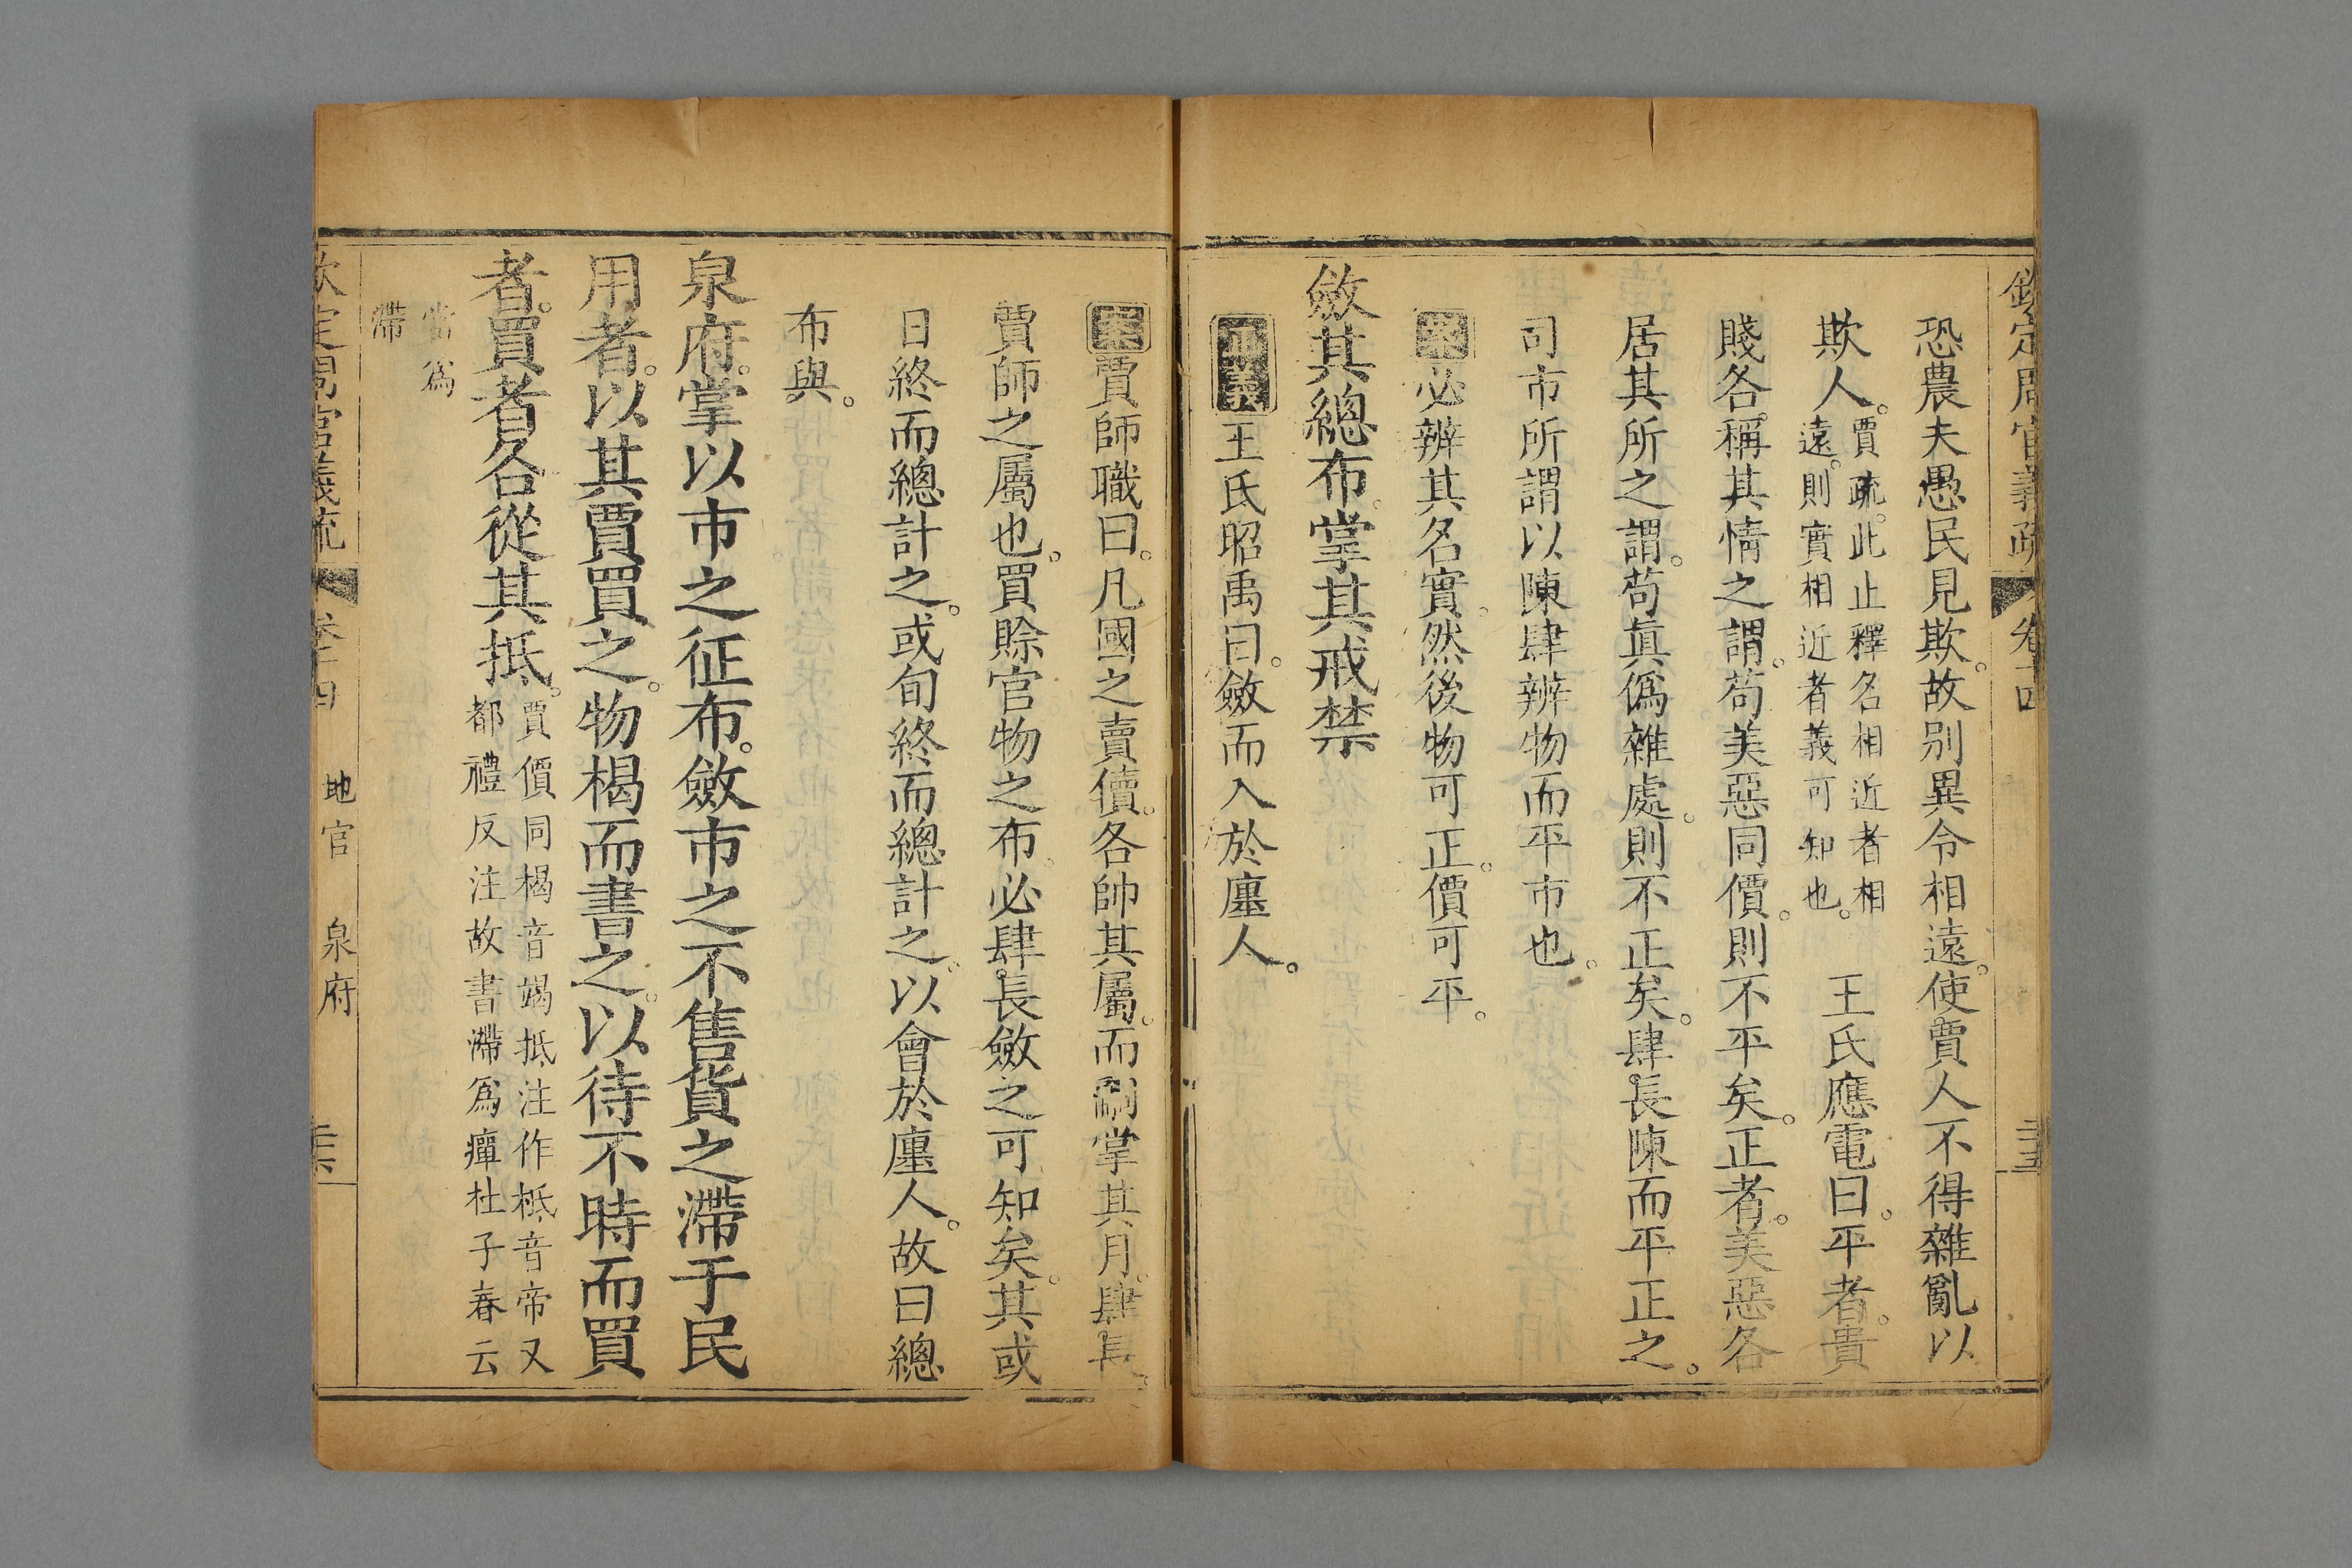 欽定周官義疏 卷十四
恐農夫愚民見欺。故別異令相遠。使賈人不得雜亂以
欺人。賈疏。此止釋名相近者相
遠。則實相近者義可知也。 王氏應電曰。平者。貴
賤各。稱其情之謂。苟美惡同價。則不平矣。正者。美惡各
居其所之謂。苟真偽雜處。則不正矣。肆長陳而平正之。
司市所謂以陳肆辨物而平市也。
案必辨其名實。然後物可正。價可平。
斂其總布。掌其戒禁
正義王氏昭禹曰。斂而入於廛人。
案賈師職曰。凡國之賣儥。各帥其屬。而嗣掌其月。肆長。
賈師之屬也。買賒官物之布。必肆長斂之可知矣。其或
日終而總計之。或旬終而總計之。以會於廛人。故曰總
布與。
泉府。掌以市之征布。斂市之不售貨之滯于民
用者。以其賈買之。物楬而書之。以待不時而買
者。買者各從其抵。賈價同楬音竭抵注作柢音帝又
都禮反注故書滯爲癉杜子春云
當爲
滯
欽定周官義疏 卷十四 地官 泉府